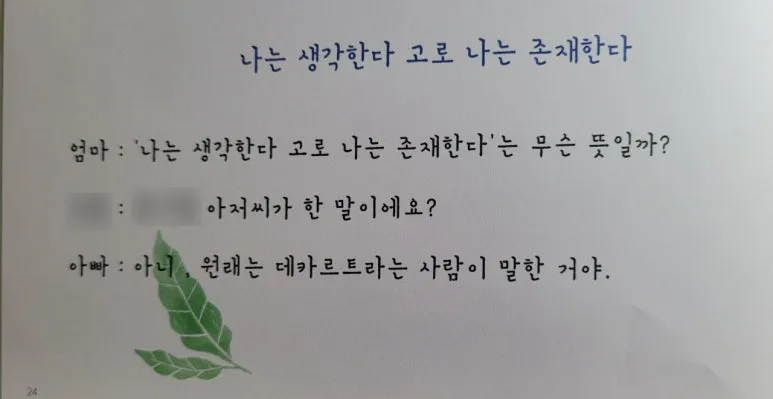 나는 생각한다 고로 나는 존재한다
엄마 : '나는 생각한다 고로 나는 존재한다'는 무슨 뜻일까?
: 아저씨가 한 말이에요?
아빠 : 아니, 원래는 데카르트라는 사람이 말한 거야.
24